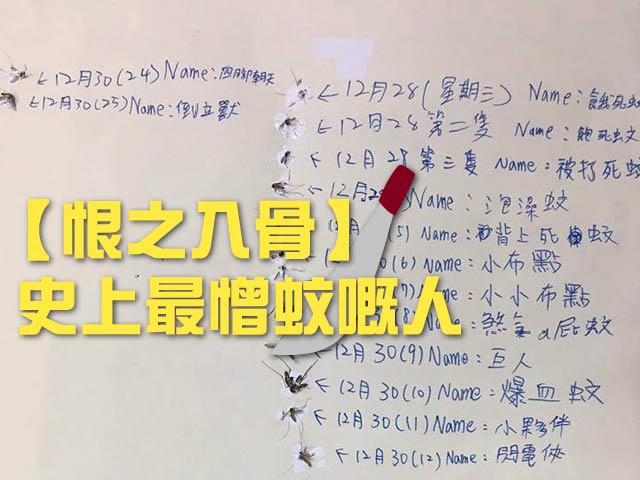 ←12月30(24)Name:四腳朝天
←12月30(25)Name:倒立獸
←12月28(星期三) Name:餓死蚊
←12月28 第二隻 Name:飽死蚊
←12月28 第三隻 Name:被打死蚊
←12月2 Name:泡澡蚊
(5) Name:背上死 蚊
(6) Name:小布點
(7) Name:小小布點
(8) Name:煞氣a屁蚊
12月30(9)Name:巨人
←12月30(10)Name:爆血蚊
←12月30(11)Name:小夥伴
←12月30(12)Name:閃電俠
【恨之入骨】
史上最憎蚊嘅人